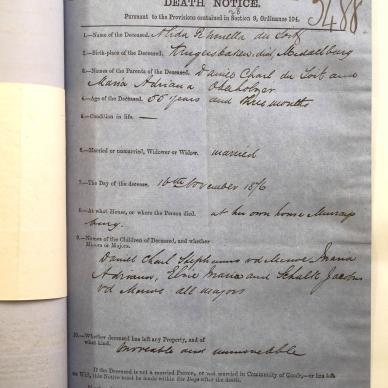 DEATH NOTICE.
Pursuant to the Provisions contained in Section 9, Ordinance 104.
5488
28
1.—Name of the Deceased. Alida Petronella du Toit
2.—Birth-place of the Deceased. dist. Middelburg
3.—Names of the Parents of the Deceased. Daniel Charl du Toit and
Maria Adriana Oberholzer
4.—Age of the Deceased. 56 years and three months
5.—Condition in life. —
6.—Married or unmarried, Widower or Widow. married
7.—The Day of the decease. 10th November 1876
8.—At what House, or where the Person died. at her own house Murrays
burg.
9.—Names of the Children of Deceased, and whether
Minors or Majors.
Daniel Charl Stephanus vd Merwe, Maria
Adriana, Elsie Maria and Schalk Jacobus
vd Merwe all majors
10.—Whether deceased has left any Property, and of
what kind. moveable and immoveable
If the Deceased is not a Married Person, or not married in Community of Goods,—or has left
no Will, this Notice must be made within Six Days after the death.